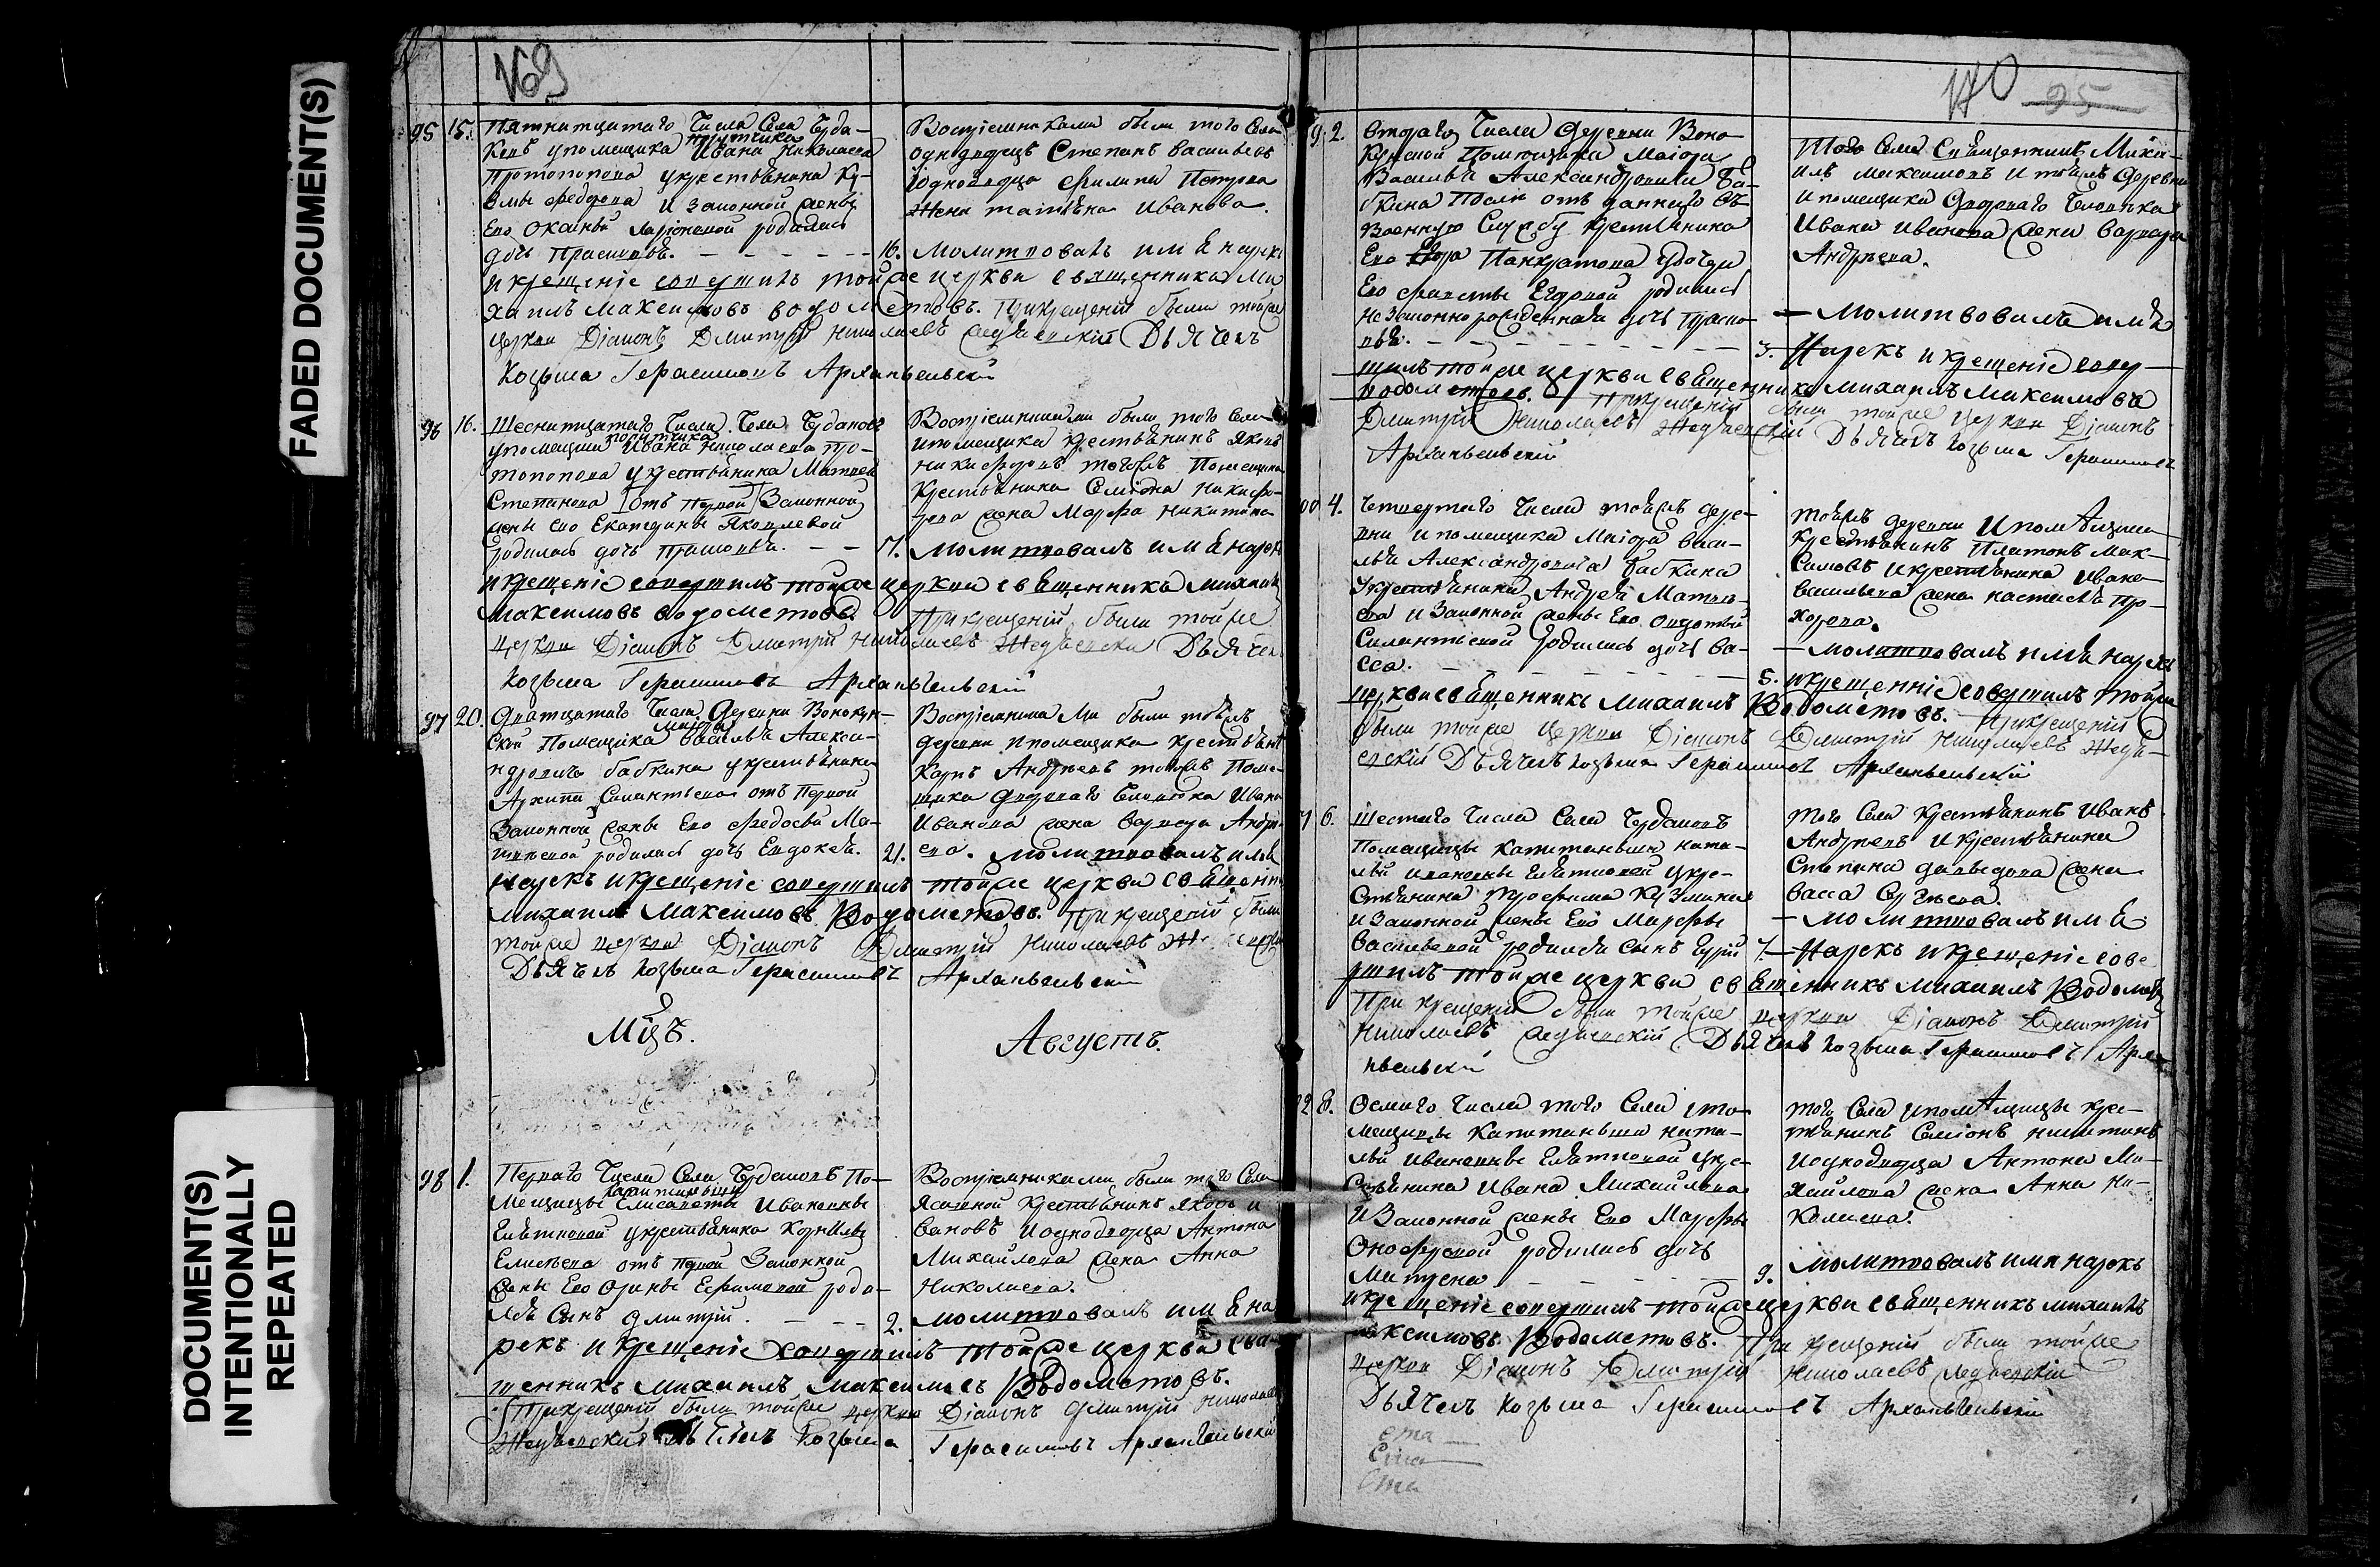 FADED DOCUMENT(S)
DOCUMENT(S)
INTENTIONALLY
REPEATED
169
95 15. Пятнатцатаго Числа Села Чуда-
ковъ упомещика порутчика Ивана Николаева
Протопопова укрестьянина Ку-
змы Федорова и Законной жены
Его Ларіоновой родилась
дочь Прасковья.
Воспріемниками были того Села
однодворецъ Степанъ Васильевъ
и однодворца Филипа Петрова
Жена Иванова.
16. Молитвовалъ имя нарекъ
и крещеніе совершилъ тойже церкви священникъ Ми
хаилъ Максимовъ Водометовъ. При крещеніи были тойже
церкви Діаконъ Дмитрій Николаевъ Дьячекъ
Козьма Герасимовъ Архангельскій
96 16. Шеснатцатаго Числа Села
упомещика порутчика Ивана Николаева Про-
топопова укрестьянина Матвея
Степанова отъ Первой Законной
жены его Екатерины Яковлевой
родилась дочь Прасковья.
Воспріемниками были того Села
ипомещика крестьянинъ Яковъ
Никифоровъ тогожъ Помещика
крестьянина Семіона Никифо-
рова жена Марфа Никитина
17. Молитвовалъ имя нарекъ
и крещеніе совершилъ тойже церкви священникъ Михаилъ
Максимовъ Водометовъ. При крещеніи были тойже
церкви Діаконъ Дмитрій Николаевъ Дьячекъ
Козьма Герасимовъ Архангельскій
97 20. Дватцатаго Числа Деревни
Помещика маіора Василья Алекса-
ндровича Бабкина укрестьянина
Архипа Силантьева отъ Первой
Законной жены Его Федосьи Ма-
родилась дочь Евдокея.
Воспріемниками были тойжъ
деревни ипомещика крестьянинъ
Карпъ Андреевъ тойжъ Поме-
щика Двороваго Человека Ивана
Иванова жена Варвара Андре-
ева.
21. Молитвовалъ имя
Нарекъ и крещеніе совершилъ тойже церкви священникъ
Михаилъ Максимовъ Водометовъ. При крещеніи были
тойже церкви Діаконъ Дмитрій Николаевъ
Дьячекъ Козьма Герасимовъ Архангельскій
Мцъ. Августъ.
98 1. Перваго Числа Села По-
мещицы капитанши Елисаветы Ивановны
укрестьянина Корнилы
Елисеева отъ Первой Законной
жены Его Орины Ефимовой роди-
лся Сынъ Дмитрій.
Воспріемниками были того Села
Ясашной крестьянинъ
Ивановъ и однодворца Антона
Михайлова жена Анна
Николаева.
2. Молитвовалъ имя на
рекъ и крещеніе совершилъ тойже церкви свя
щенникъ Михаилъ Максимовъ Водометовъ.
При крещеніи были тойже церкви Діаконъ Дмитрій Николаевъ
Дьячекъ Козьма Герасимовъ Архангельскій
170 95
2. Втораго Числа Деревни
Помещика Маіора
Василья Александровича Ба-
бкина После отъданнаго въ
Военную Службу крестьянина
Его Панкратова
Его Егоровой родилась
Незаконнорожденная дочь Праско-
вья.
Того Села Священникъ Миха-
илъ Максимовъ и тойжъ деревни
ипомещика Двороваго Человека
Ивана Иванова жена Варвара
Андреева.
Молитвовалъ имя
3. Нарекъ и крещеніе совер-
шилъ тойже церкви священникъ Михаилъ Максимовъ
Водометовъ. При крещеніи были тойже церкви Діаконъ
Дмитрій Николаевъ Дьячекъ Козьма Герасимовъ
Архангельскій
4. Четвертаго Числа тойжъ дере-
вни ипомещика Маіора Васи-
лья Александровича Бабкина
укрестьянина Андрея Матве-
ева и Законной жены Его
Силантьевой родилась дочь Ва-
сса.
тойжъ деревни ипомещика
крестьянинъ Платонъ Мак-
симовъ икрестьянина Ивана
Васильева жена Настасья Про-
хорова.
Молитвовалъ имя нарекъ
5. и крещенніе совершилъ тойже
церкви священникъ Михаилъ Водометовъ. При крещеніи
были тойже церкви Діаконъ Дмитрій Николаевъ
Дьячекъ Козьма Герасимовъ Архангельскій
6. Шестаго Числа Села
Помещицы Капитанши Ната-
льи Ивановны укре-
стьянина Трофима Кузмина
и Законной жены Его Марфы
Васильевой родился Сынъ
того Села крестьянинъ Иванъ
Андреевъ икрестьянина
Степана Давыдова жена
Васса Сергеева.
Молитвовалъ имя
7. Нарекъ и крещеніе сове
ршилъ тойже церкви священникъ Михаилъ Водометовъ
При крещеніи были тойже церкви Діаконъ Дмитрій
Николаевъ Дьячекъ Козьма Герасимовъ Арха
нгельскій
8. Осмаго Числа того Села упо-
мещицы Капитанши Ната-
льи Ивановны укре-
стьянина Ивана Михайлова
и Законной жены Его Марфы
Онофреевой родилась дочь
Матрена
того Села ипомещицы кре-
стьянинъ Семіонъ Никитинъ
и однодворца Антона Ми-
хайлова жена Анна Ни-
колаева.
9. Молитвовалъ имя нарекъ
и крещеніе совершилъ тойже церкви священникъ Михаилъ
Максимовъ Водометовъ. При крещеніи были тойже
церкви Діаконъ Дмитрій Николаевъ
Дьячекъ Козьма Герасимовъ Архангельскій